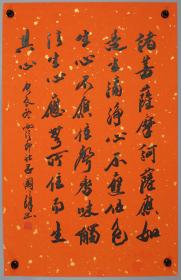 諸菩薩摩訶薩應如
是生清淨心不應住色
生心不應住聲香味觸
法生心應無所住而生
其心